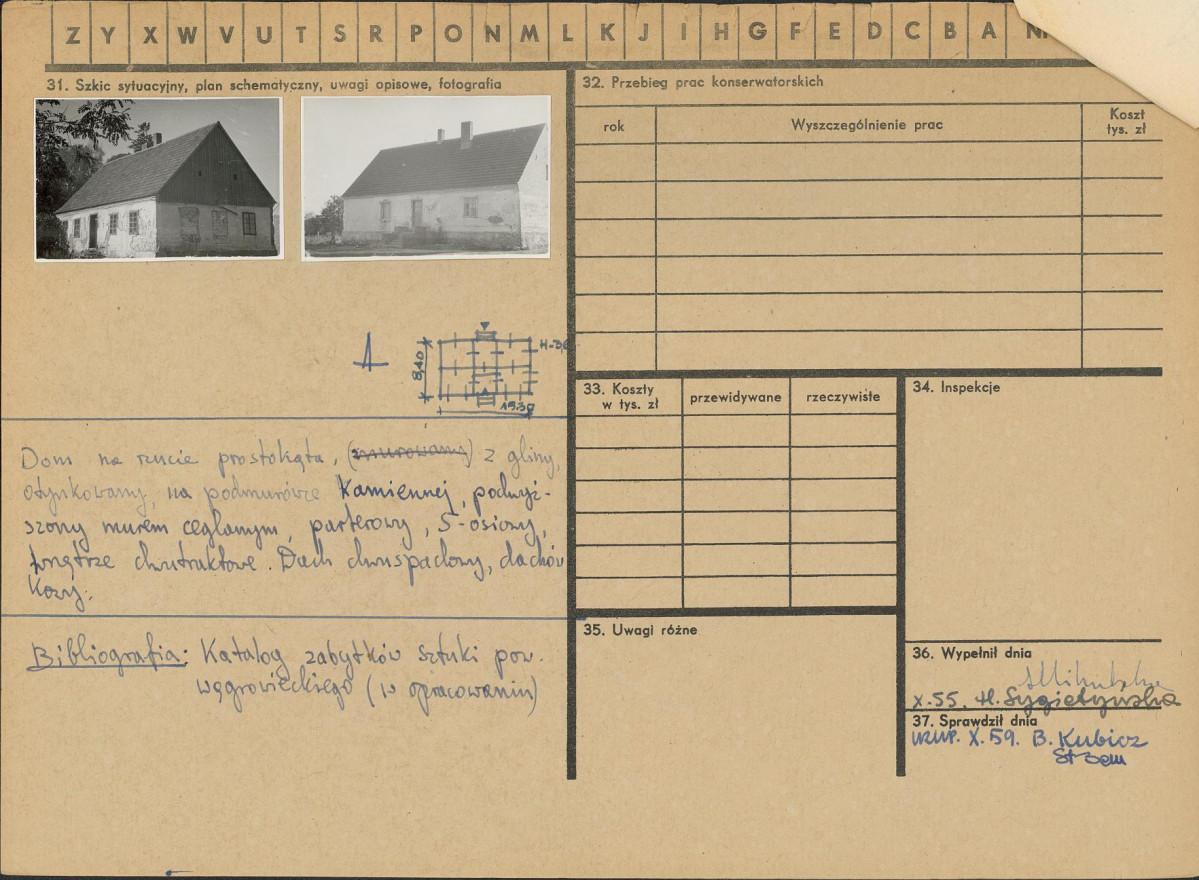 Z Y X W V U T S R P O N M L K J I H G F E D C B A
31. Szkic sytuacyjny, plan schematyczny, uwagi opisowe, fotografia
8,40
Dom na rzucie prostokąta, (murowany) z gliny,
otynkowany, na podmurówce kamiennej, podwyż-
szony murem ceglanym, parterowy, 5-osiowy,
wnętrze dwutraktowe. Dach dwuspadowy, dachów
kowy.
Bibliografia: Katalog zabytków sztuki pow.
wągrowieckiego (w opracowaniu)
32. Przebieg prac konserwatorskich
rok
Wyszczególnienie prac
Koszt
tys. zł
33. Koszty
w tys. zł
przewidywane
rzeczywiste
34. Inspekcje
35. Uwagi różne
36. Wypełnił dnia
X.55. H. Sygietyńska
37. Sprawdził dnia
uzup. X. 59. B. Kubicz